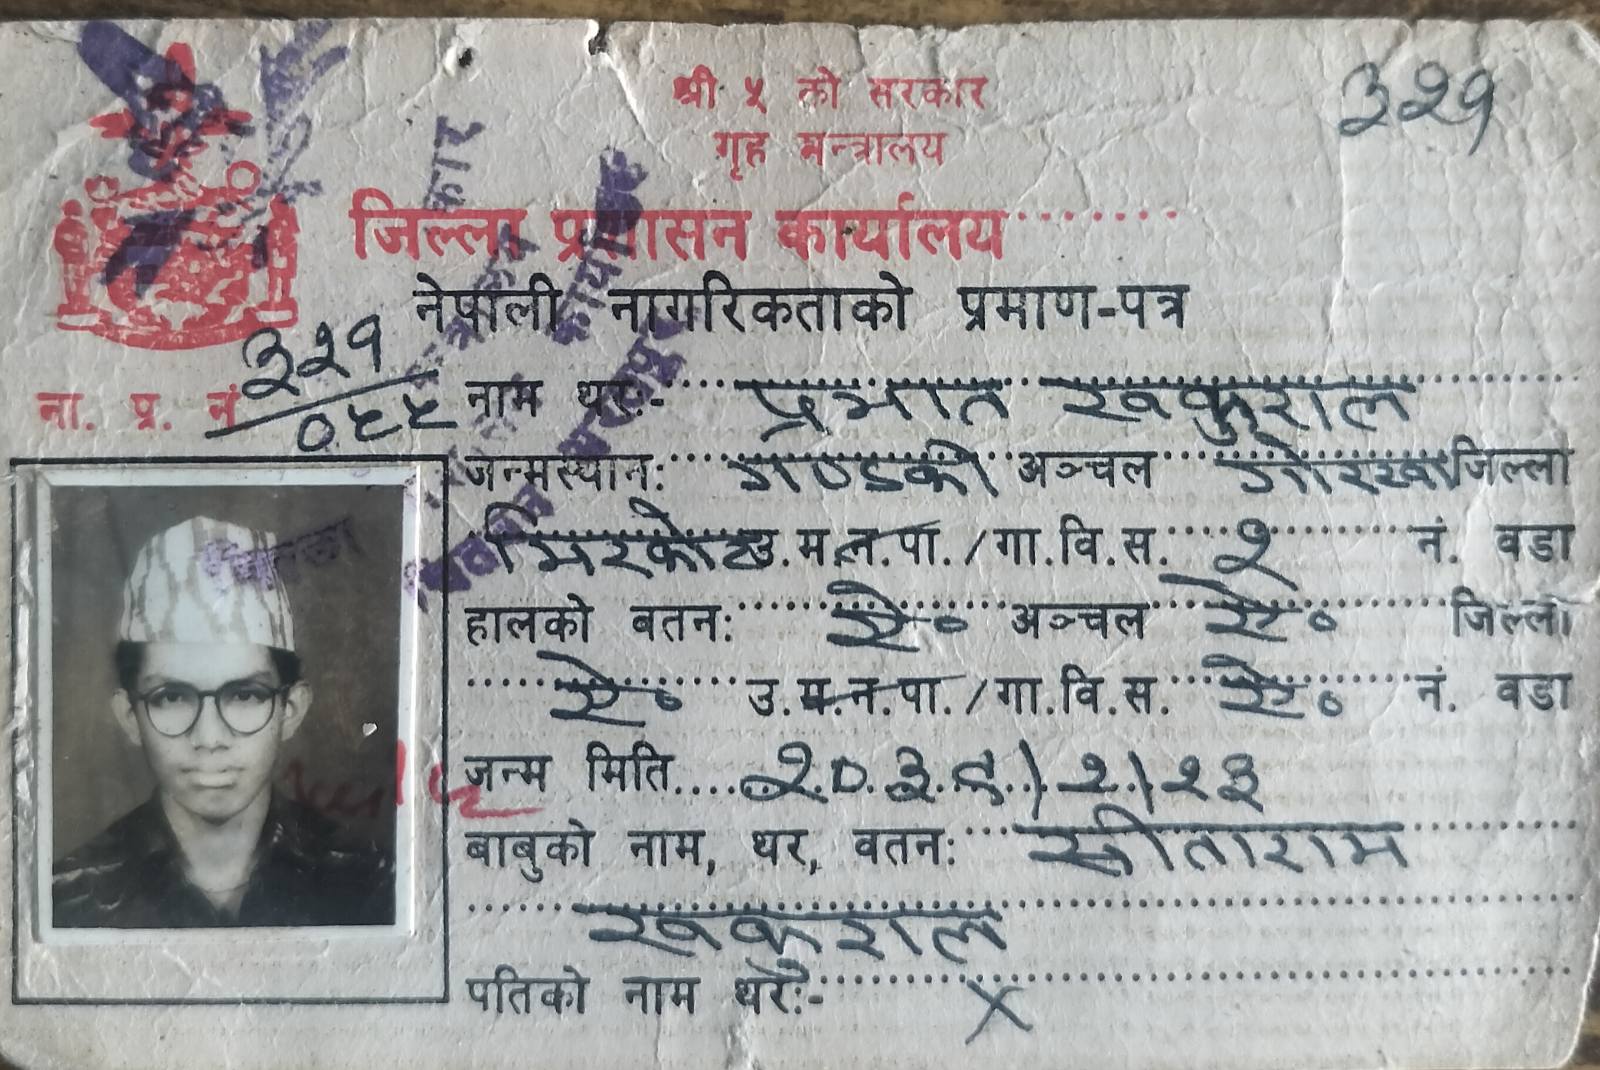 श्री ५ को सरकार
३२१
गृह मन्त्रालय
जिल्ला प्रशासन कार्यालय
नेपाली नागरिकताको प्रमाण-पत्र
ना. प्र. नं ३२१/०५५
नाम थरः- प्रभात खकुराल
जन्मस्थान: गण्डकी अञ्चल गोरखा जिल्ला
मिरकोट उ.म.न.पा./गा.वि.स. २ नं. वडा
हालको वतन: ऐ० अञ्चल ऐ० जिल्ला
ऐ० उ.म.न.पा./गा.वि.स. ऐ० नं. वडा
जन्म मिति.... २०३९/२/२३
बाबुको नाम, थर, वतन: सीताराम
खकुराल
पतिको नाम थरः- X